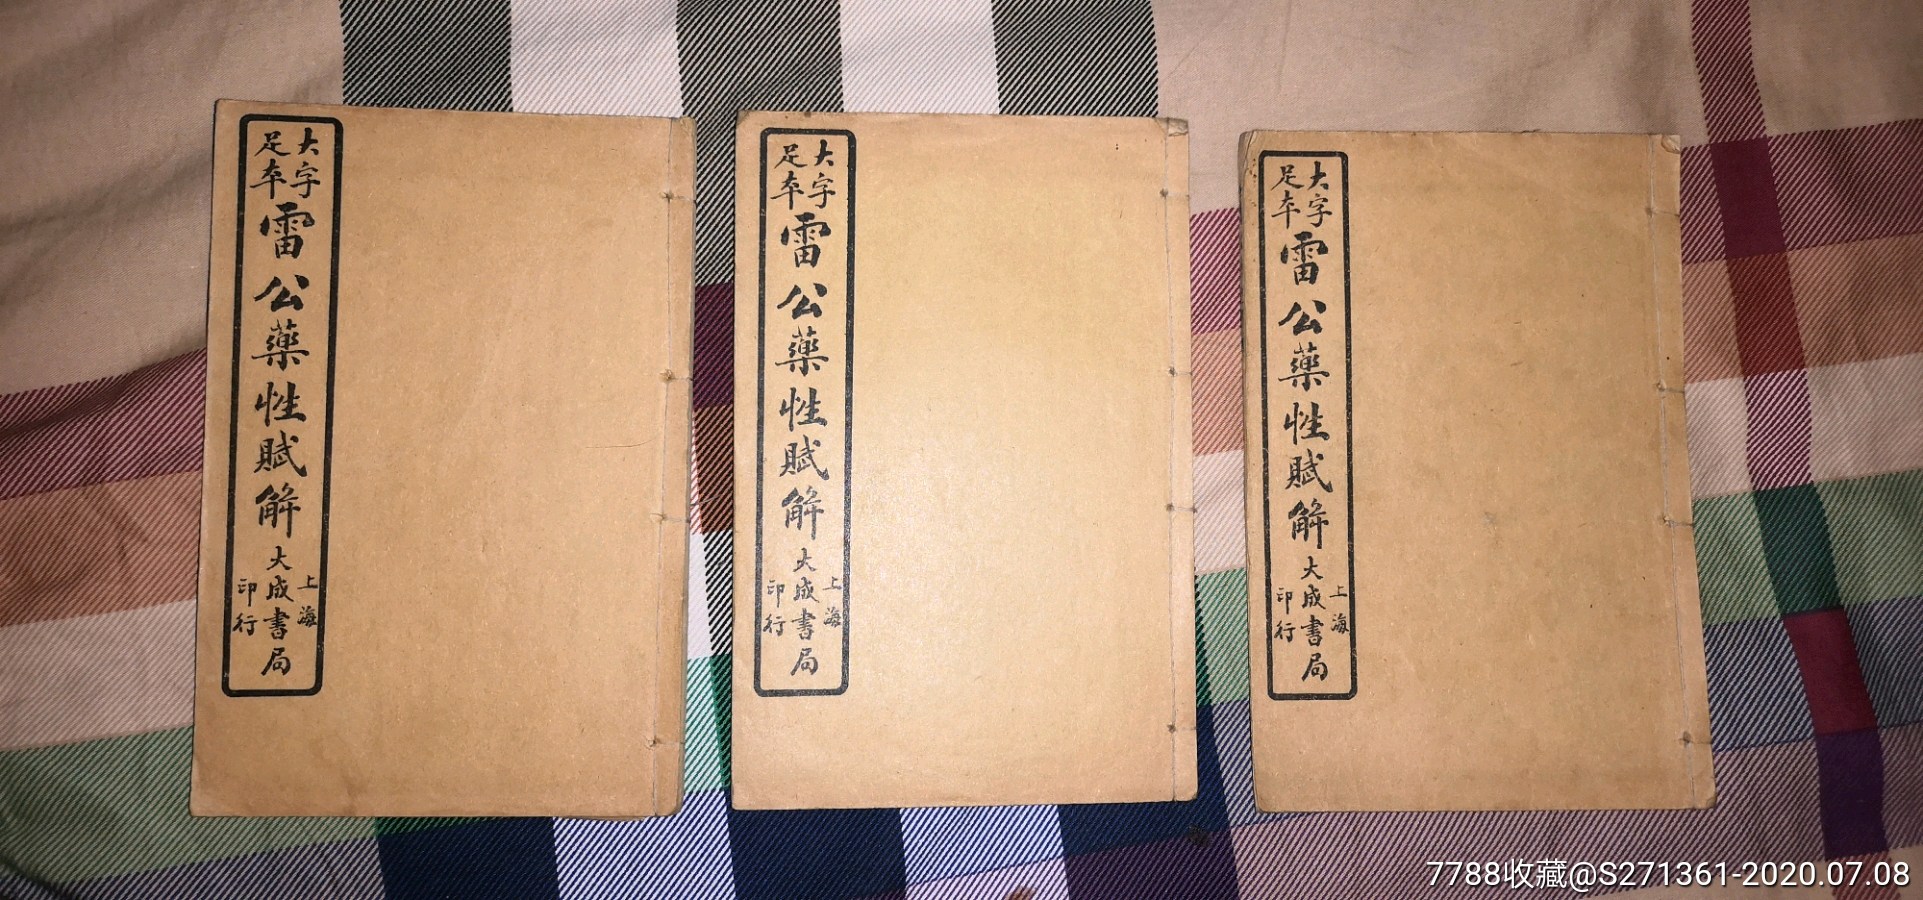 大字
足本
雷公藥性賦解
上海
大成書局
印行
大字
足本
雷公藥性賦解
上海
大成書局
印行
大字
足本
雷公藥性賦解
上海
大成書局
印行
7788收藏@S271361-2020.07.08